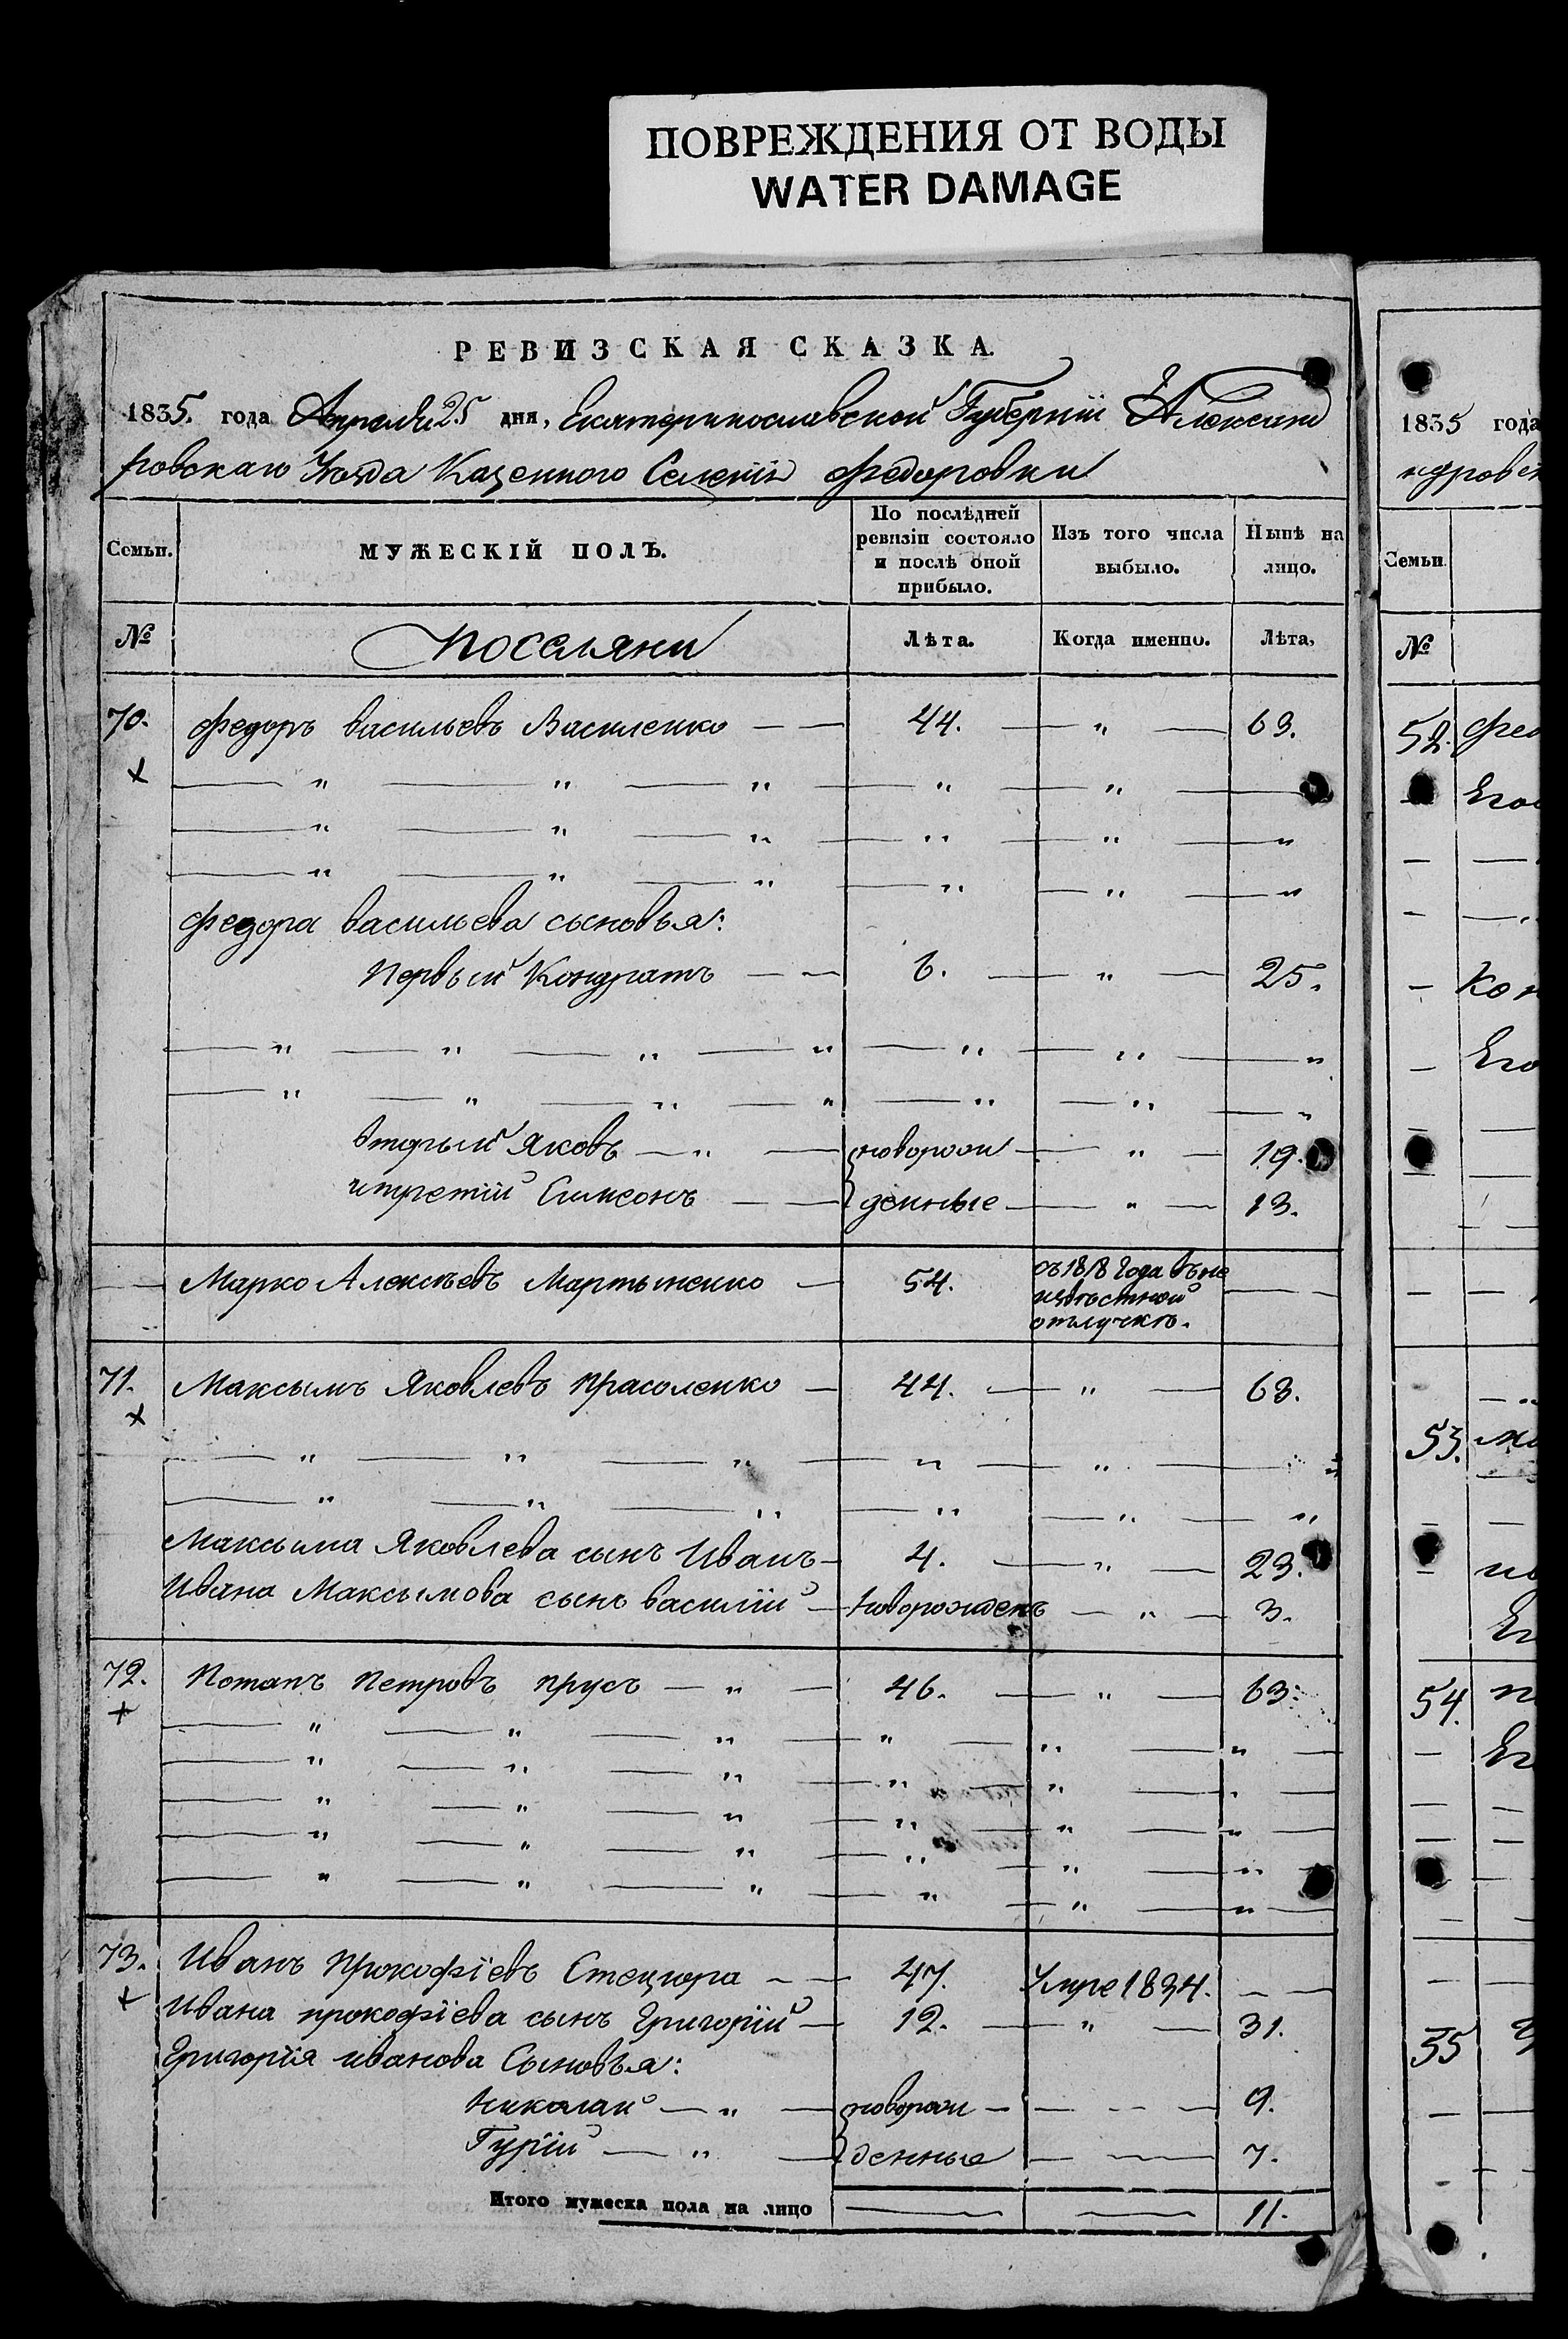 ПОВРЕЖДЕНИЯ ОТ ВОДЫ
WATER DAMAGE
РЕВИЗСКАЯ СКАЗКА.
1835. года Апреля 25 дня, Екатеринославской Губерніи Александ
ровскаго Уезда Казенного Селенія Федоровки
Семьи. МУЖЕСКІЙ ПОЛЪ. По послѣдней ревизіи состояло и послѣ оной прибыло. Изъ того числа выбыло. Нынѣ на лицо.
№ Поселяни Лѣта. Когда именно. Лѣта,
70. Федоръ Васильевъ Василенко — — 44. — " — 63.
х — " — " — " — " — " —
— " — " — " — " — " — "
— " — " — " — " — " — "
Федора Васильева сыновья:
Первый Кондратъ — — 6. — " — 25.
— " — " — " — " — " — " — "
— " — " — " — " — " — " — "
Вторый Яковъ — " — новорож — " — 19.
итретій Симеонъ — — денные — " — 13.
— Марко Алексѣевъ Мартыненко — 54. съ 1818 года въ не
извѣстной
отлучкѣ. — —
71. Максымъ Яковлевъ Прасоленко — 44. — " — 63.
х — " — " — " — " — " — "
— " — " — " — " — " — "
Максыма Яковлева сынъ Иванъ — 4. — " — 23.
Ивана Максымова сынъ Василій — Новорожденъ — " — 3.
72. Потапъ Петровъ Прусъ — " — 46. — " — 63.
х — " — " — " — " — " — " —
— " — " — " — " — " — " —
— " — " — " — " — " — " —
— " — " — " — " — " — " —
— " — " — " — " — " — " —
73. Иванъ Прокофіевъ Стецюра — — 47. Умре 1834. — —
х Ивана Прокофіева сынъ Григорій — 12. — " — 31.
Григорія Иванова Сыновья:
Николай — " — новорож — — — — 9.
Гурій — " — денные — — — 7.
Итого мужеска пола на лицо — — 11.
1835 года
ндровск
Семьи.
№
52. Фео
— Его
— Кон
— Его
53. Ма
Ег
54. П
— Ег
55